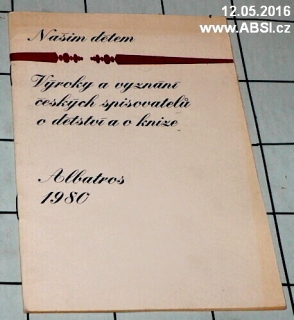 12.05.2016
www.ABSI.cz
Našim dětem
Výroky a vyznání
českých spisovatelů
o dětství a o knize
Albatros
1980